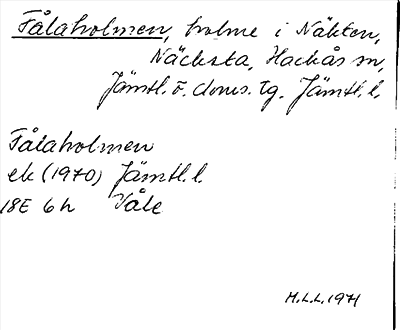 Fålaholmen, holme i Näkten,
Näcksta, Hackås sn,
Jämtl. ö. doms. tg. Jämtl. l.
Fålaholmen
ek (1970) Jämtl. l.
18E 6h Våle
H.L.L. 1971